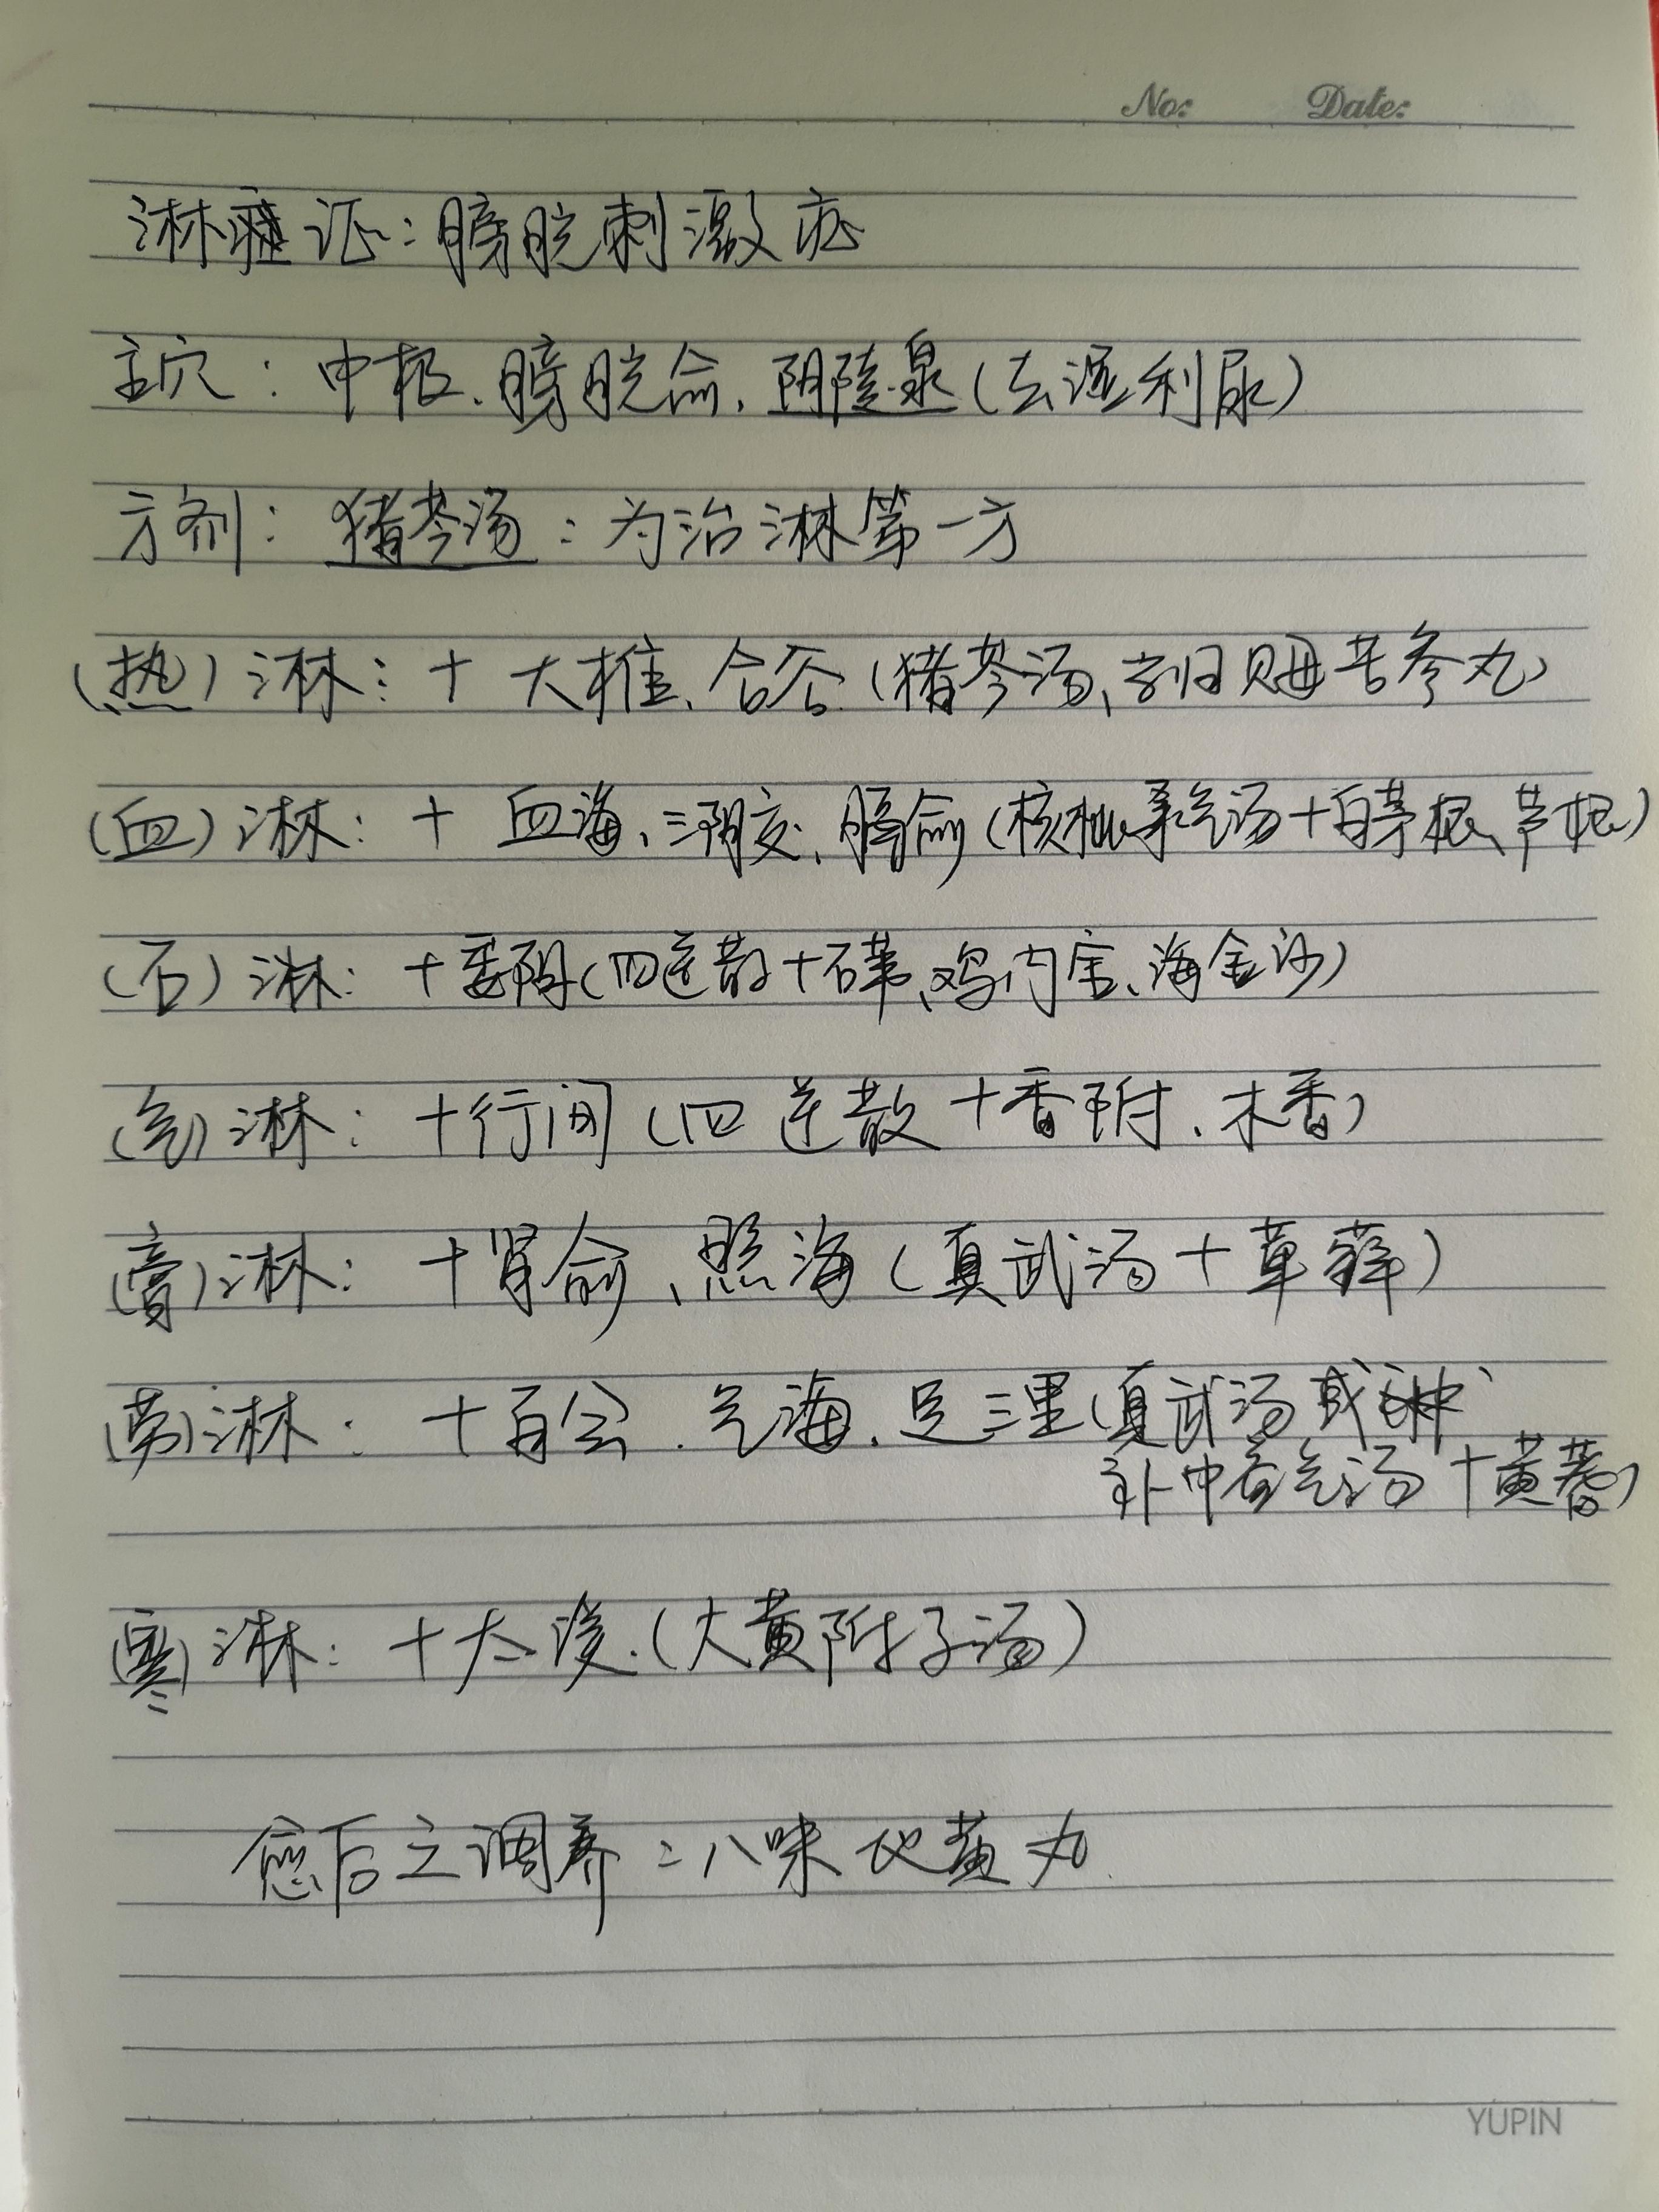 No: Date:
淋证:膀胱刺激症
主穴:中极、膀胱俞、阴陵泉(去湿利尿)
方剂:猪苓汤:为治淋第一方
(热)淋:+大椎、合谷(猪苓汤、当归贝母苦参丸)
(血)淋:+血海、三阴交、膈俞(核桃承气汤+白茅根、芦根)
(石)淋:+委阳(四逆散+石苇、鸡内金、海金沙)
(气)淋:+行间(四逆散+香附、木香)
(膏)淋:+肾俞、照海(真武汤+草薢)
(劳)淋:+百会、气海、足三里(真武汤或
补中益气汤+黄芪)
(寒)淋:+太溪.(大黄附子汤)
愈后之调养:八味地黄丸
YUPIN